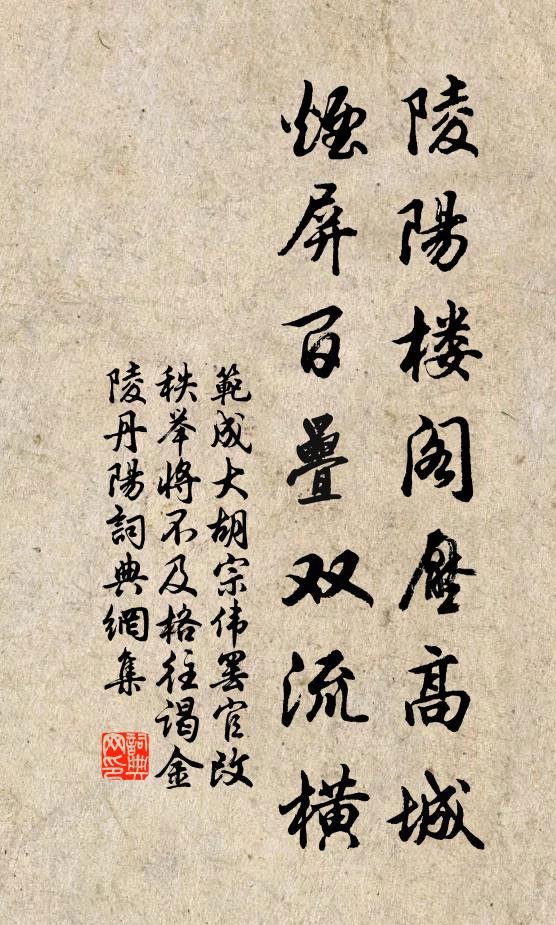 陵陽楼阁壓高城
煙屏百疊双流橫
範成大胡宗伟罢官改
秩举将不及格往谒金
陵丹阳詞典網集
詞典
网印